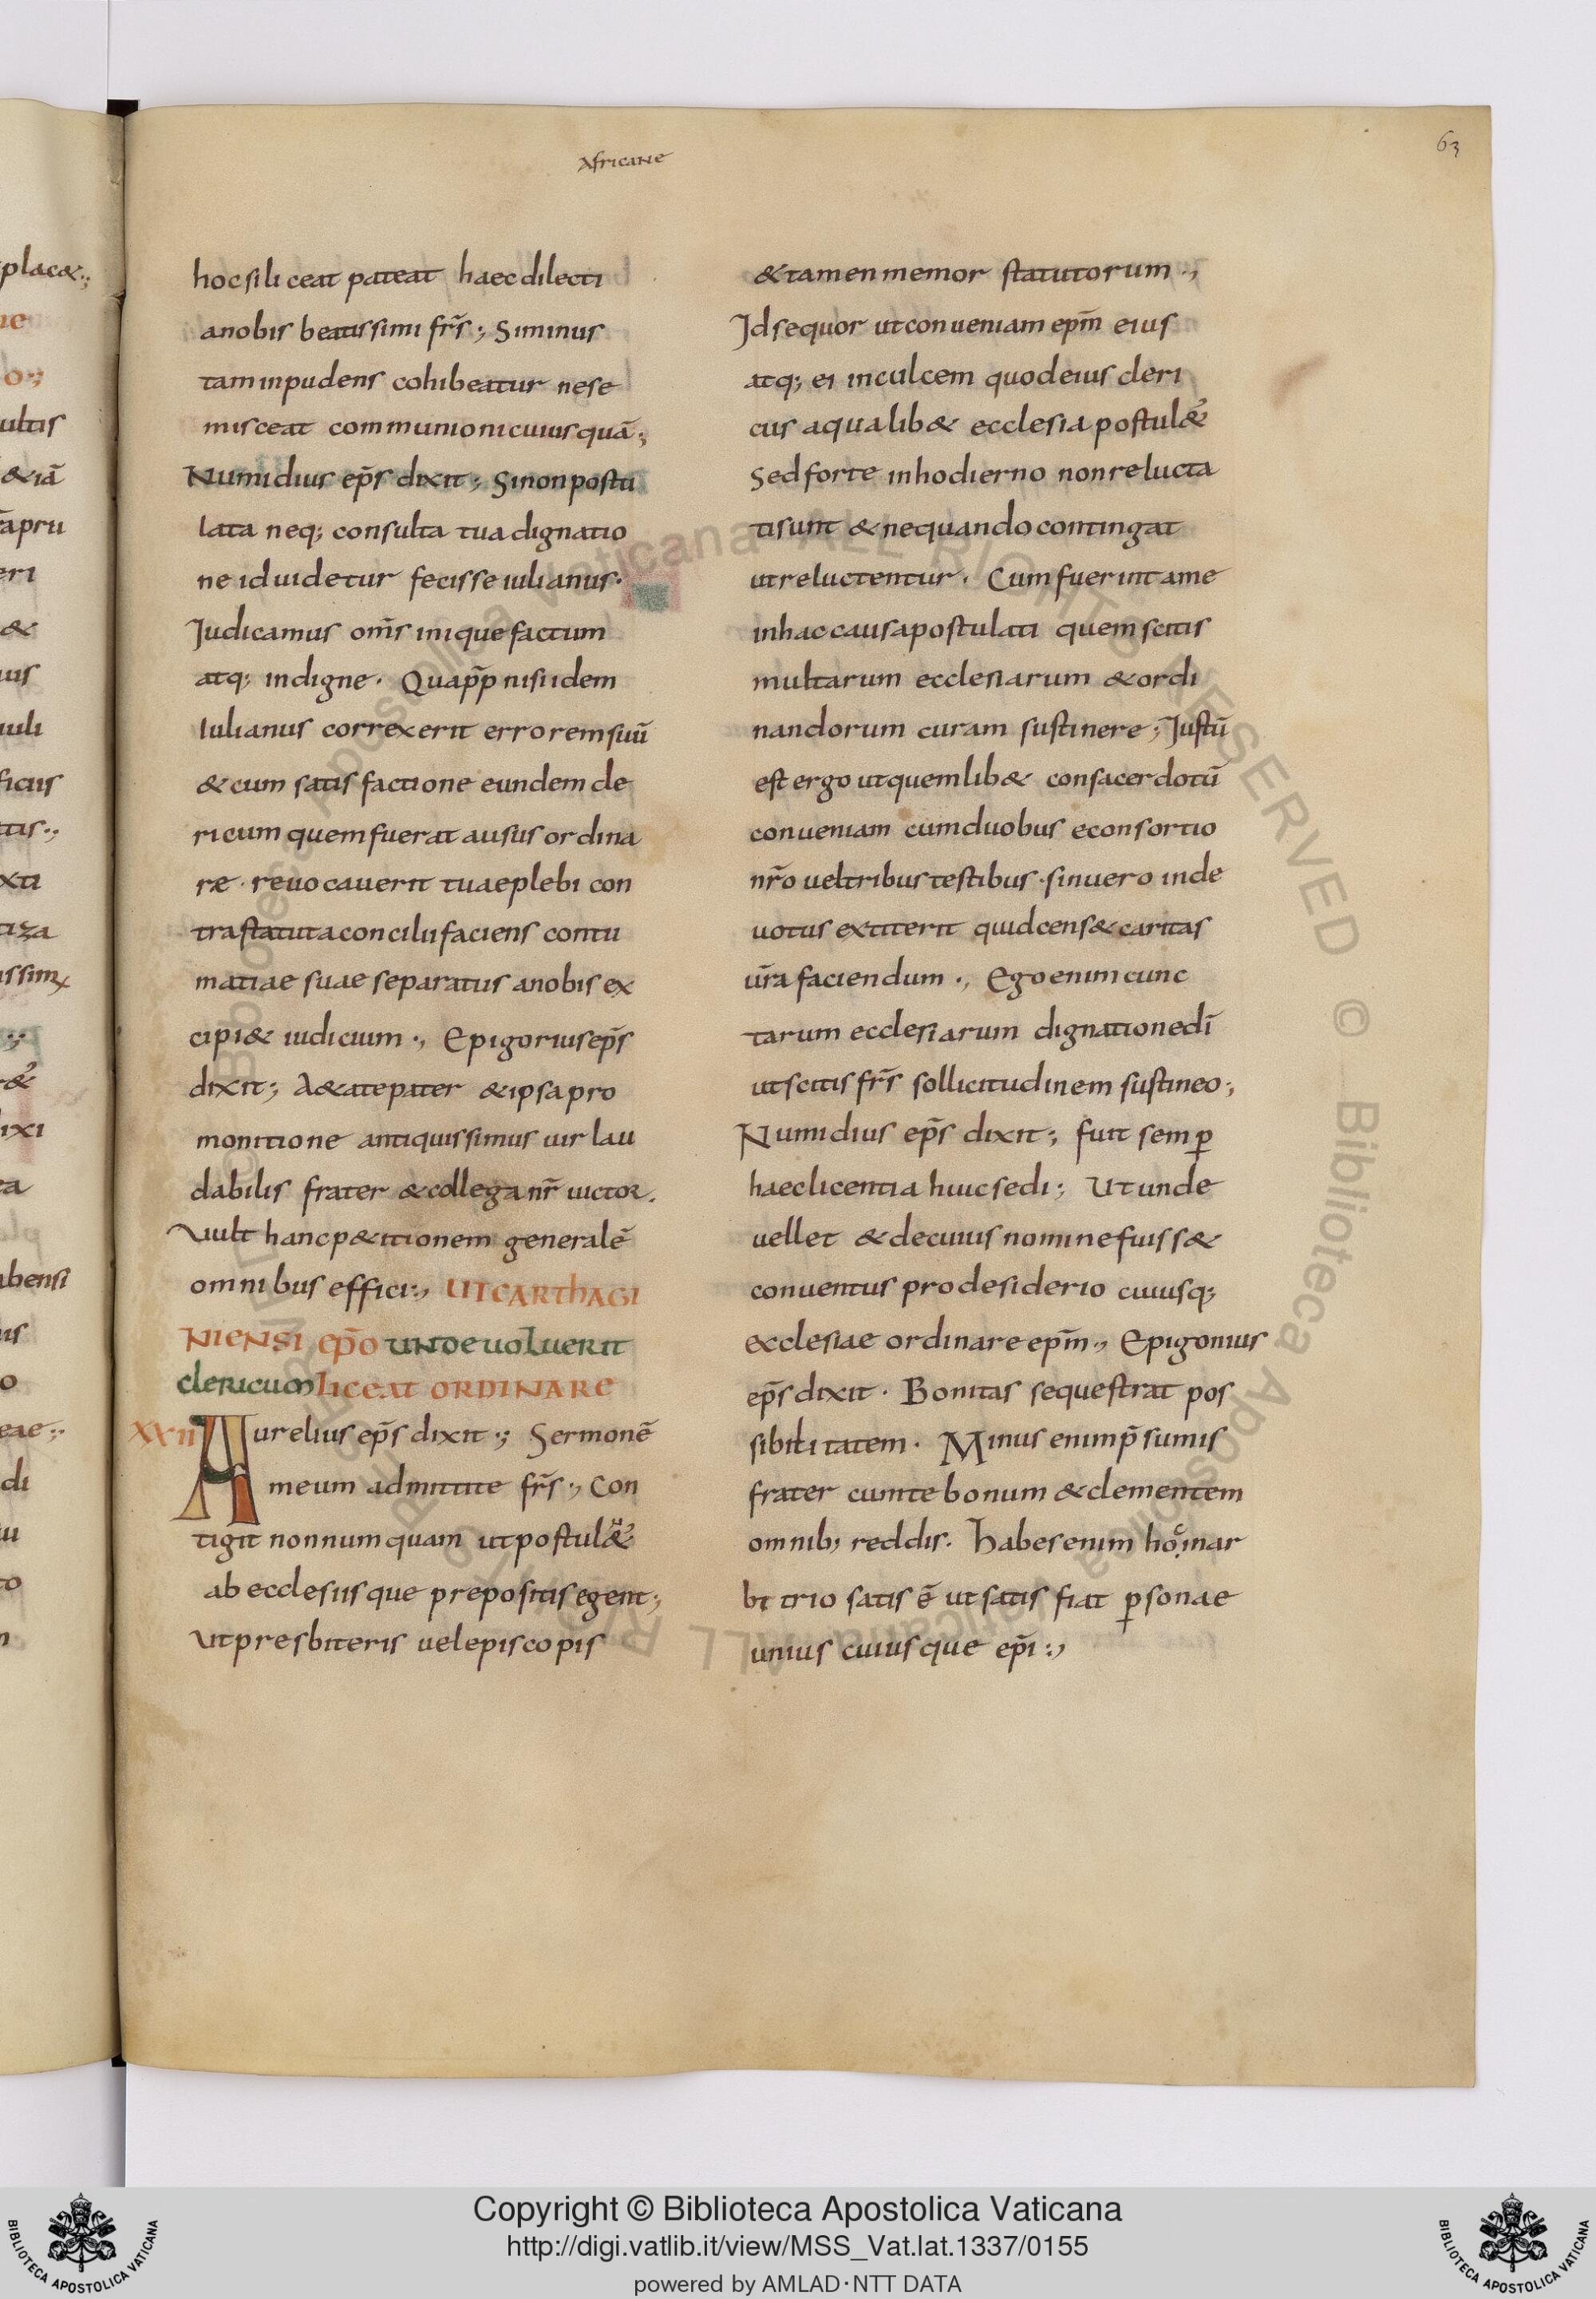 Africane
63
hoc si liceat pateat haec dilecti
a nobis beatissimi fr̄s ; Si minus
tam inpudens cohibeatur ne se
misceat communioni cuiusquā ;
Numidius ep̄s dixit ; Si non postu
lata neq; consulta tua dignatio
ne id uidetur fecisse iulianus ·
Judicamus om̄s inique factum
atq; indigne · Quap̄p nisi idem
Iulianus correxerit errorem suū
& cum satisfactione eundem cle
ricum quem fuerat ausus ordina
re · reuocauerit tuae plebi con
tra statuta concilii faciens contu
matiae suae separatus a nobis ex
cipi& iudicium ., Epigorius ep̄s
dixit ; A&ate pater & ipsa pro
monitione antiquissimus uir lau
dabilis frater & collega nr̄ uictor .
Uult hanc p&itionem generalē
omnibus effici ., UT CARThAGI
NIENSI ep̄o UNDE uoluerit
clericum liceat ORDINARE
XXII Aurelius ep̄s dixit ; Sermonē
meum admittite fr̄s ., Con
tigit nonnumquam ut postul&
ab ecclesiis que prepositis egent ;
Ut presbiteris uel episcopis
& tamen memor statutorum .,
Id sequor ut conueniam ep̄m eius
atq; ei inculcem quod eius cleri
cus a qualib& ecclesia postul&
Sed forte in hodierno non relucta
ti sunt & ne quando contingat
ut reluctentur . Cum fuerint a me
in hac causa postulati quem scitis
multarum ecclesiarum & ordi
nandorum curam sustinere ; Justū
est ergo ut quemlib& consacerdotū
conueniam cum duobus e consortio
nr̄o uel tribus testibus · sin uero inde
uotus extiterit quid cens& caritas
ur̄a faciendum ., Ego enim cunc
tarum ecclesiarum dignatione dī
ut scitis fr̄s sollicitudinem sustineo ;
Numidius ep̄s dixit ; fuit semp̱
haec licentia huic sedi ; Ut unde
uellet & de cuius nomine fuiss&
conuentus pro desiderio cuiusq;
ecclesiae ordinare ep̄m ., Epigonius
ep̄s dixit · Bonitas sequestrat pos
sibilitatem · Minus enim p̄sumis
frater cum te bonum & clementem
omnib; reddis . Habes enim hoc in ar
bitrio satis ē ut satis fiat p̱sonae
unius cuiusque ep̄i .,
Copyright © Biblioteca Apostolica Vaticana
http://digi.vatlib.it/view/MSS_Vat.lat.1337/0155
powered by AMLAD·NTT DATA
BIBLIOTECA APOSTOLICA VATICANA
BIBLIOTECA APOSTOLICA VATICANA